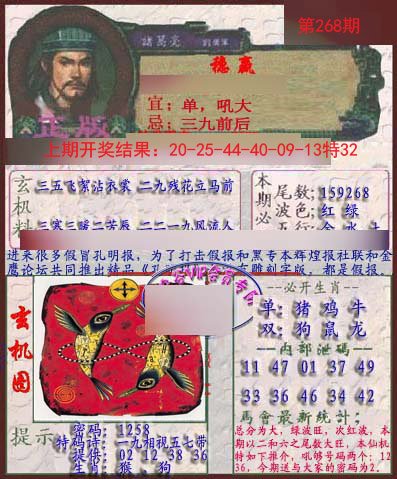 第268期
諸葛亮
稳赢
宜；单，吼大
忌；三九前后
正版
上期开奖结果：20-25-44-40-09-13特32
玄机料
三五飞絮沾衣裳 二九残花立马前
本期必
尾数;159268
波色;红 绿
进来很多假冒孔明报，为了打击假报和黑专本辉煌报社联和金
鹰论坛共同推出精品《孔
雕刻字版，都是假报。
玄机图
--必开生肖--
单：猪 鸡 牛
双：狗 鼠 龙
--内部泄码--
11 47 01 37 49
33 36 46 34 42
馬會最新統計；
总分为大，绿波旺，次红波，本
期以二和六之尾数大旺，本仙机
特如下推介，吼够号码两个：12
36，今期送与大家的密码为2．
提示
密码：1258
特码诗：一九相视五七带
提供：02 12 38 36
生肖：猴，狗